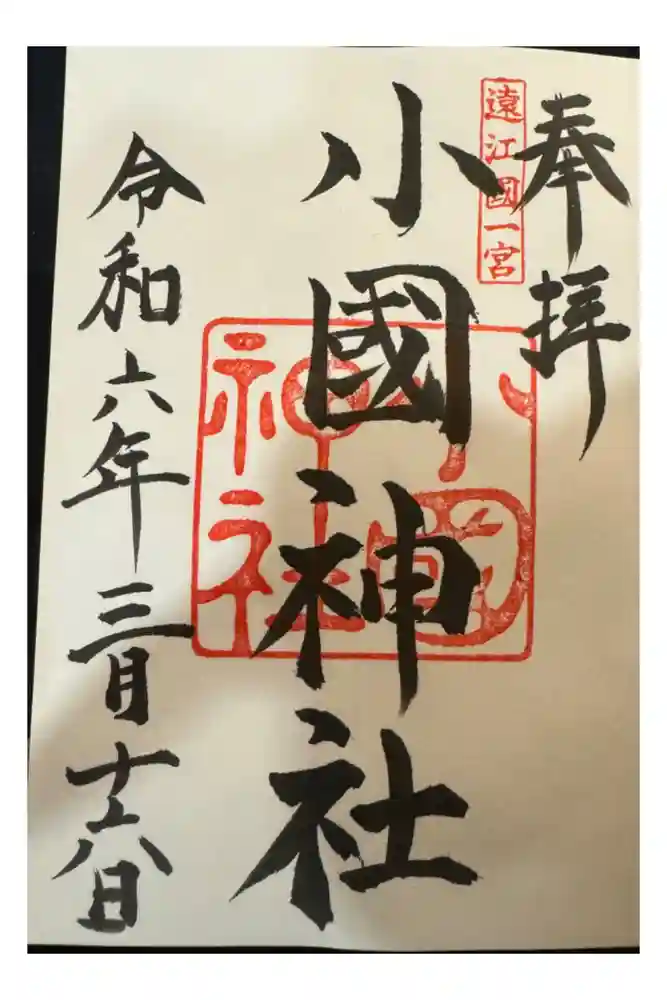 奉拝
遠江國一宮
小國神社
小國
神社
令和六年三月十六日